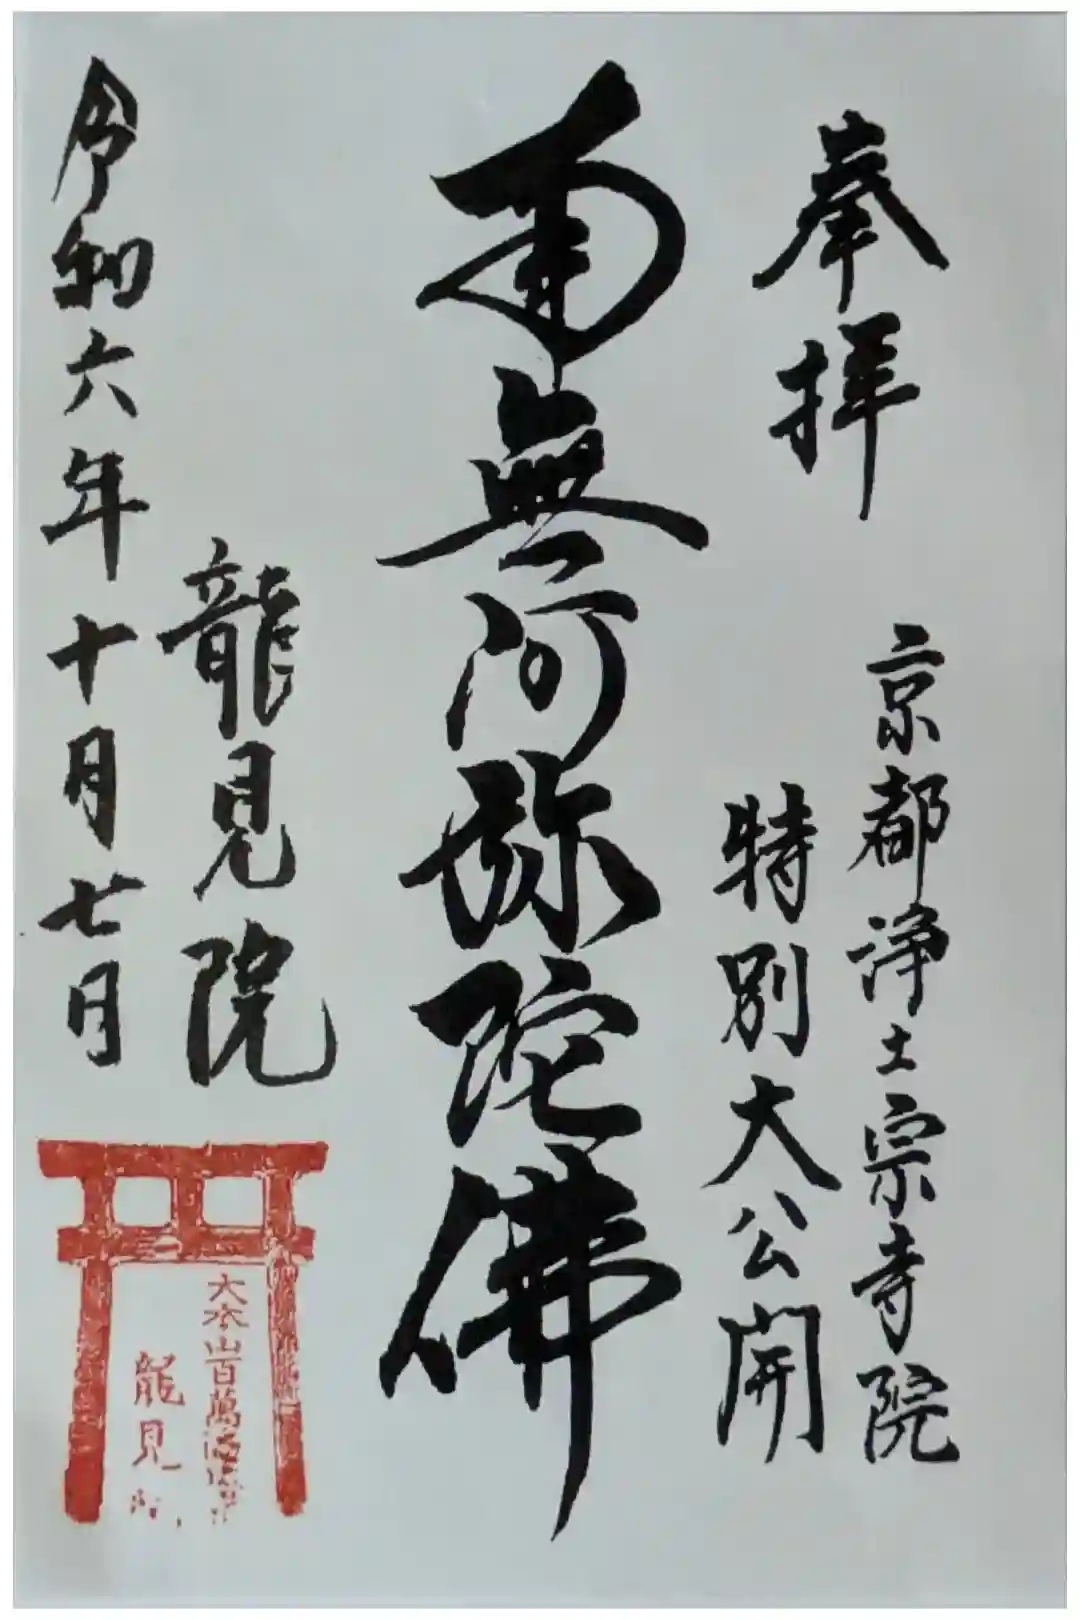 奉拝
京都浄土宗寺院
特別大公開
南無阿弥陀佛
龍見院
令和六年十月七月
大本山百萬遍
龍見